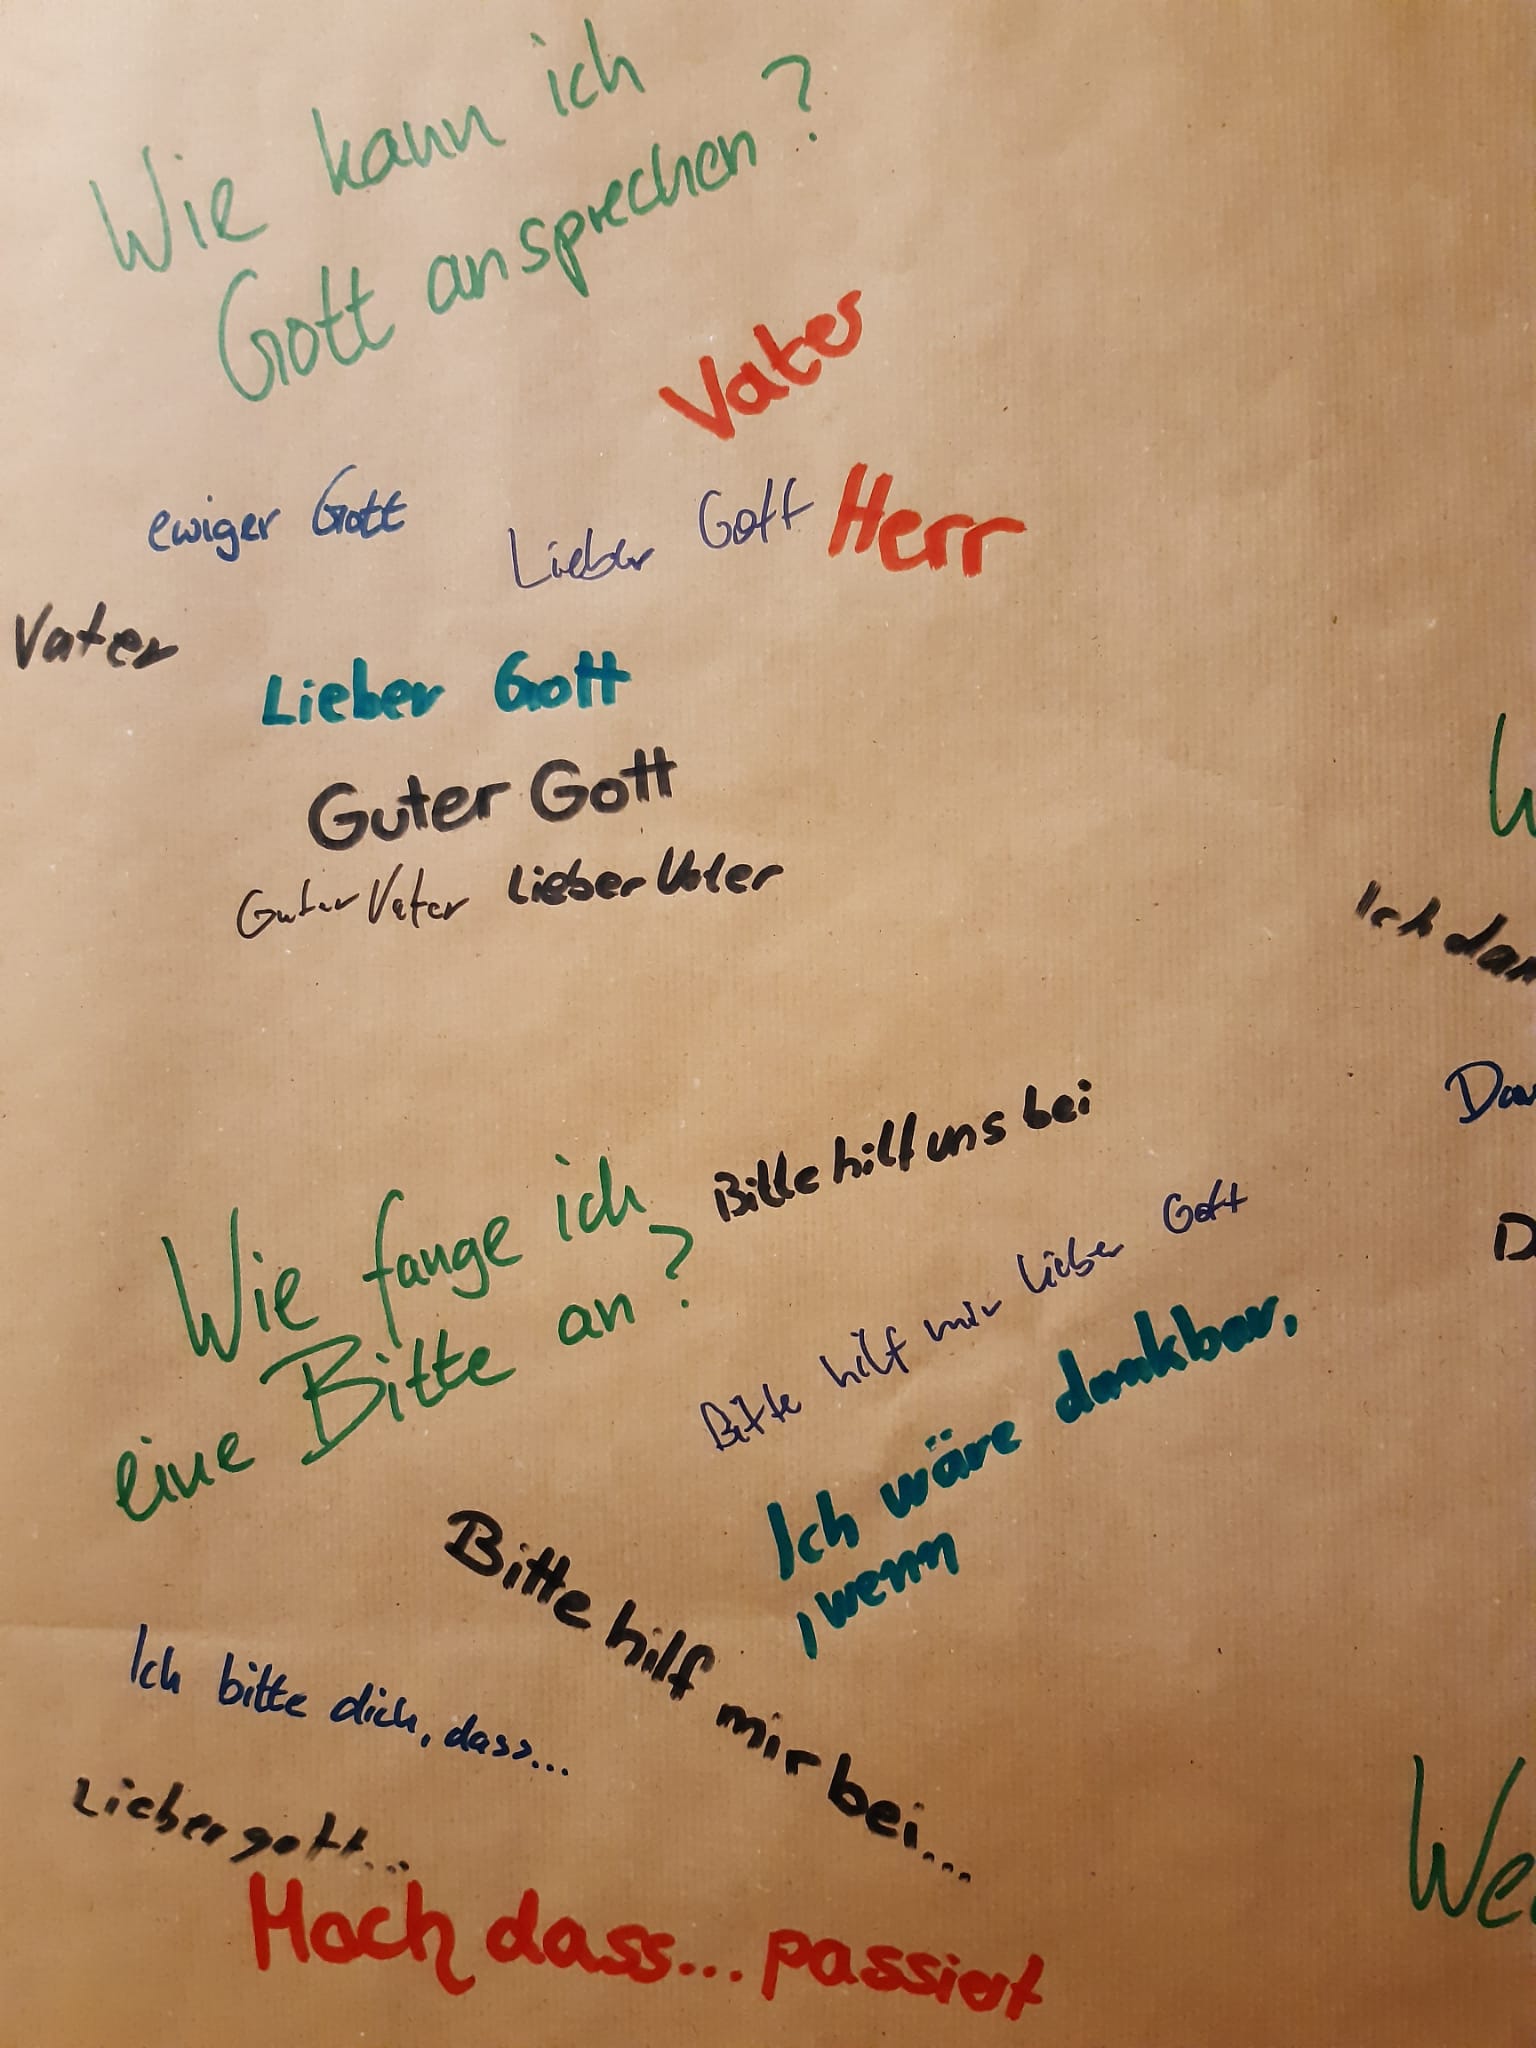 Wie kann ich
Gott ansprechen?
Vater
ewiger Gott
Lieber Gott
Herr
Vater
Lieber Gott
Guter Gott
Guter Vater
Lieber Vater
Wie fange ich
eine Bitte an?
Bitte hilf uns bei
Bitte hilf mir lieber Gott
Ich wäre dankbar,
, wenn
Bitte hilf mir bei...
Ich bitte dich, dass...
Lieber gott...
Mach dass... passiert
Ich dan
Dan
D
We